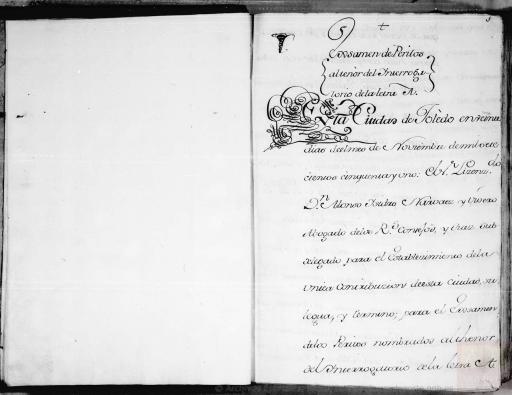 5 +
Exsamen de Peritos
al tenor del Interroga
torio de la letra A.
En la Ciudad de Toledo en veinte
dias del mes de Noviembre de mil sete
cientos cinquenta y uno: El Sr. Lizendo
Dn. Alonso Isidro Narvaez y Vivero
Abogado delos Rs. Consejos, y Juez Sub
delegado para el establecimiento de la
Unica Contribuzion de esta ciudad, su
legua, y termino; para el Exsamen
delos Peritos nombrados al thenor
del Interrogatorio de la letra A